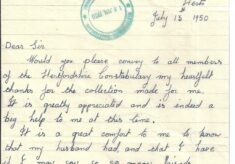 Herts
July 13 1950
Dear Sir
Would you please convey to all members
of the Hertfordshire Constabulary my heartfelt
thanks for the collection made for me.
It is greatly appreciated and is indeed a
big help to me at this time.
It is a great comfort to me to know
that my husband had, and that I have
if I may say so so many friends